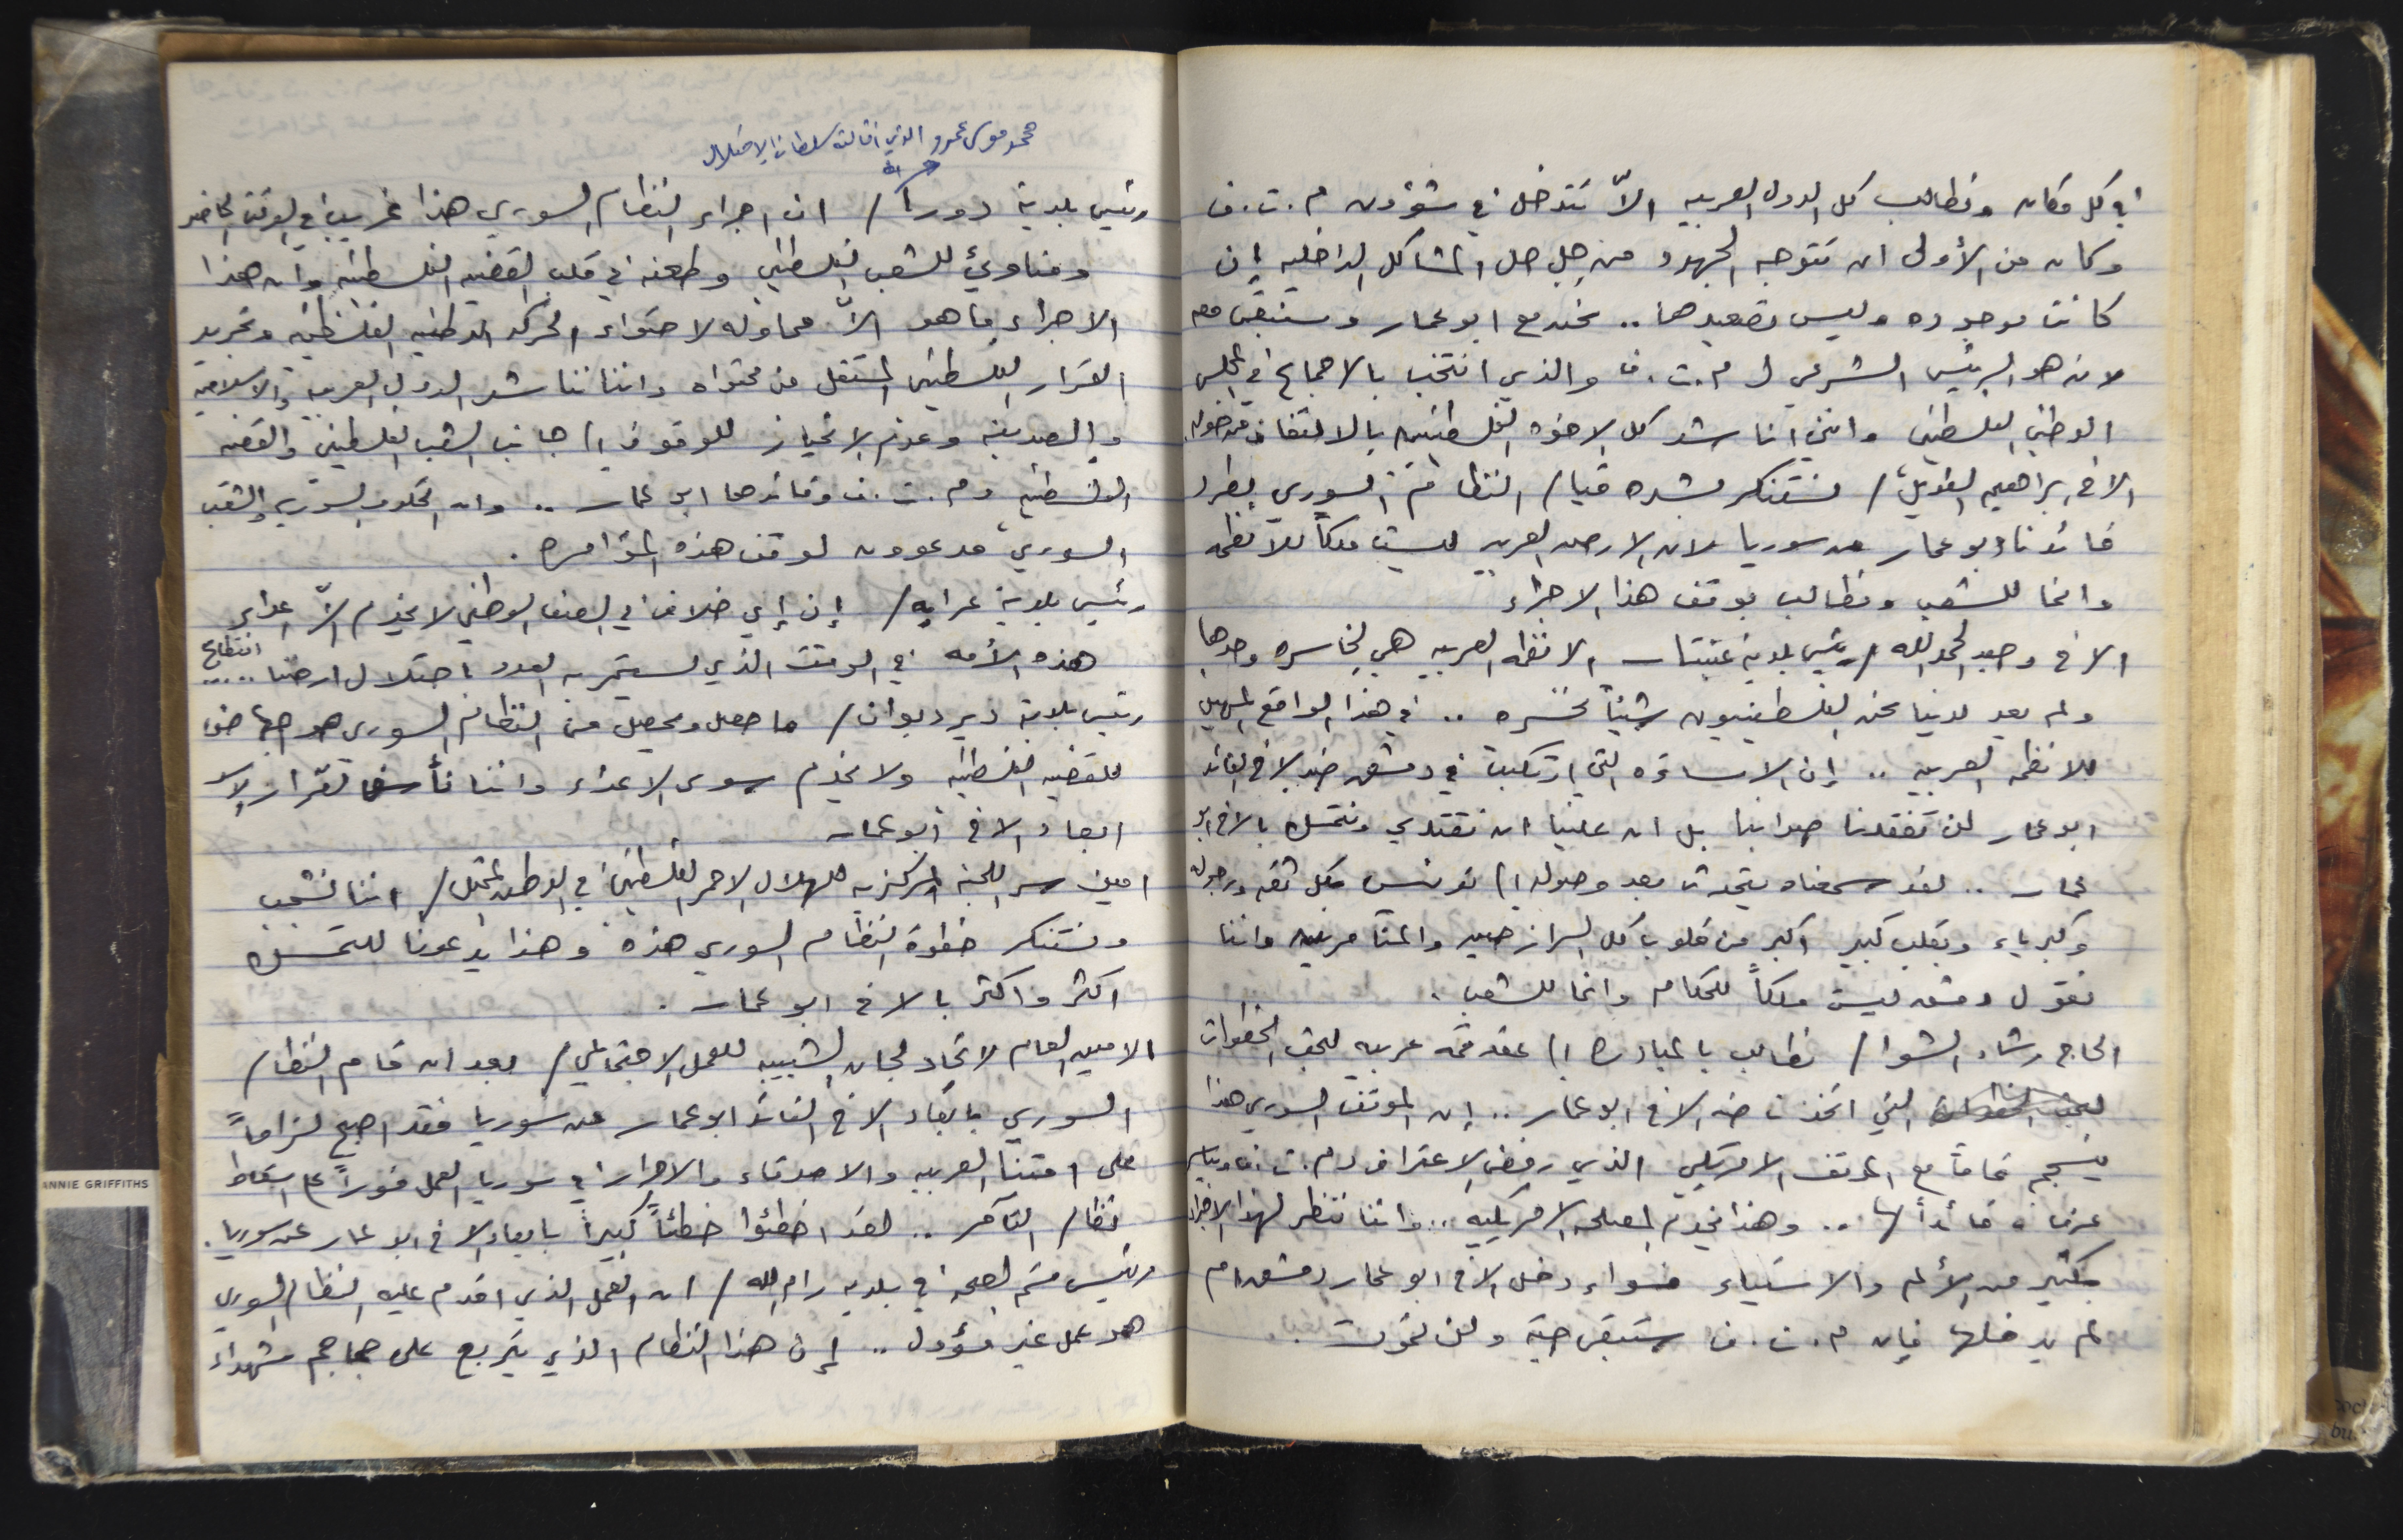 في كل مكان ونطالب كل الدول العربيه الاّ تتدخل في شؤون م.ت.ف
وكان من الأولى ان تتوجه الجهود من جل حل المشاكل الداخليه إن
كانت موجوده وليس تصعيدها .. نحن مع ابو عمار وسنبقى معه
لانه هو الرئيس الشرعي ل م.ت.ف والذي انتخب بالاجماع في المجلس
الوطني الفلسطيني وانني اناشد كل الاخوه الفلسطينين بالالتفاف من حوله
الاخ ابراهيم الطويل / نستنكر بشده قيام النظام السوري بطرد
قائدنا ابو عمار من سوريا لان الارض العربيه ليست ملكاً للانظمه
وانما للشعب ونطالب بوقف هذا الاجراء
الاخ وحيد الحمد الله / رئيس بلدية عنبتا .. الانظمه العربيه هي الخاسره وحدها
ولم يعد لدينا نحن الفلسطينيون شيئاً نخسره .. في هذا الواقع المهين
للانظمه العربيه .. إن الاساءه التي ارتكبت في دمشق ضد الاخ القائد
ابو عمار لن تفقدنا صوابنا بل ان علينا ان نقتدي ونتمسك بالاخ ابو
عمار .. لقد سمعناه يتحدث بعد وصوله إلى تونس بكل ثقه ورجوله
وكبرياء وبقلب كبير اكبر من قلوب كل المتآمرين واننا
نقول دمشق ليست ملكاً للحكام وانما للشعب .
الحاج رشاد الشوا / نطالب بالمبادره إلى عقد قمه عربيه الخطوات
التي اتخذت ضد الاخ ابو عمار .. إن الموقف السوري هذا
ينسجم تماماً مع الموقف الامريكي الذي رفض الاعتراف بـ م.ت.ف وبياسر
عرفات قائداً لها .. وهذا يخدم المصلحه الامريكيه .. واننا ننظر لهذا الاجراء
بكثير من الألم والاستياء فسواء دخل الاخ ابو عمار دمشق ام
لم يدخلها فإن م.ت.ف ستبقى حيّه ولن تموت .
محمد موسى عمرو الذي اقالته سلطات الاحتلال
رئيس بلدية دورا / ان اجراء النظام السوري هذا غريب في الوقت الحاضر
ومناوئ للشعب الفلسطيني وطعنه في قلب القضيه الفلسطينيه وان هذا
الاجراء ما هو الاّ محاوله لاحتواء الحركه الوطنيه الفلسطينيه وتجريد
القرار الفلسطيني المستقل من محتواه واننا نناشد الدول العربيه والاسلاميه
والصديقه وعدم الانحياز للوقوف إلى جانب الشعب الفلسطيني والقضيه
الفلسطينيه و م.ت.ف وقائدها ابو عمار .. وان الحكومه السوريه والشعب
السوري مدعوون لوقف هذه المؤامره .
رئيس بلدية عرابه / إن إي خلاف في الصف الوطني لا يخدم الاّ اعداء
هذه الأمه في الوقت الذي يستمر به العدو باحتلال ارضنا .. انتطاع ...
رئيس بلدية دير دبوان / ما حصل ويحصل من النظام السوري هو اجهاض
للقضيه الفلسطينيه ولا يخدم سوى الاعداء واننا نأسف لقرار الاسد
ابعاد الاخ ابو عمار
امين سر اللجنه المركزيه للهلال الاحمر الفلسطيني في الوطن المحتل / اننا نشجب
ونستنكر خطوة النظام السوري هذه وهذا يدعونا للتمسك
اكثر واكثر بالاخ ابو عمار .
الامين العام لاتحاد لجان الشبيبه للعمل الاجتماعي / بعد ان قام النظام
السوري بابعاد الاخ القائد ابو عمار من سوريا فقد اصبح لزاماً
على امتنا العربيه والاصدقاء والاحرار في سوريا العمل فوراً على اسقاط
نظام التآمر .. لقد اخطئوا خطئاً كبيراً بابعاد الاخ ابو عمار عن سوريا .
رئيس قسم الصحه في بلديه رام الله / ان العمل الذي اقدم عليه النظام السوري
هو عمل غير مسؤول .. إن هذا النظام الذي يتربع على جماجم شهداء
ANNIE GRIFFITHS